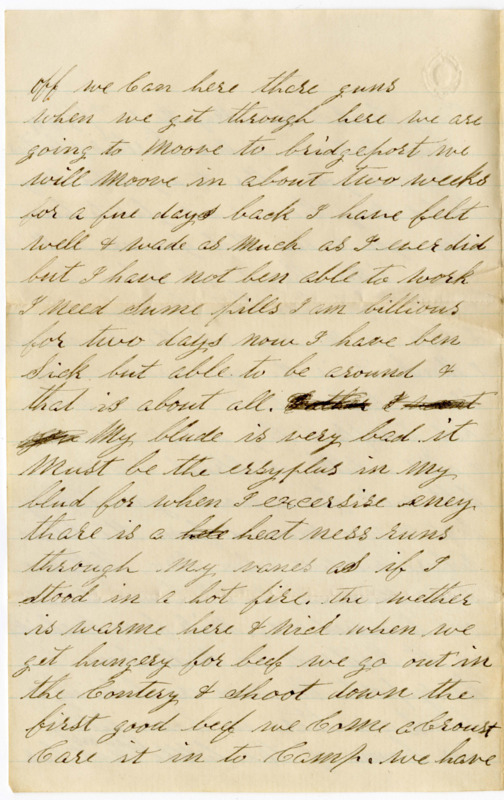 off we Can here there guns
when we get through here we are
going to moove to bridgeport we
will moove in about two weeks
for a fue days back I have felt
well & wade as much as I ever did
but I have not ben able to work
I need sume pills I am billious
for two days now I have ben
Sick but able to be around &
that is about all. I
My blude is very bad it
Must be the ersyplus in my
blud for when I excersise eney
thare is a heat ness runs
through My vanes as if I
stood in a hot fire. the wether
is warme here & nice when we
get hungery for beef we go out in
the Contery & shoot down the
first good beef we Come a Croust
Care it in to Camp. we have